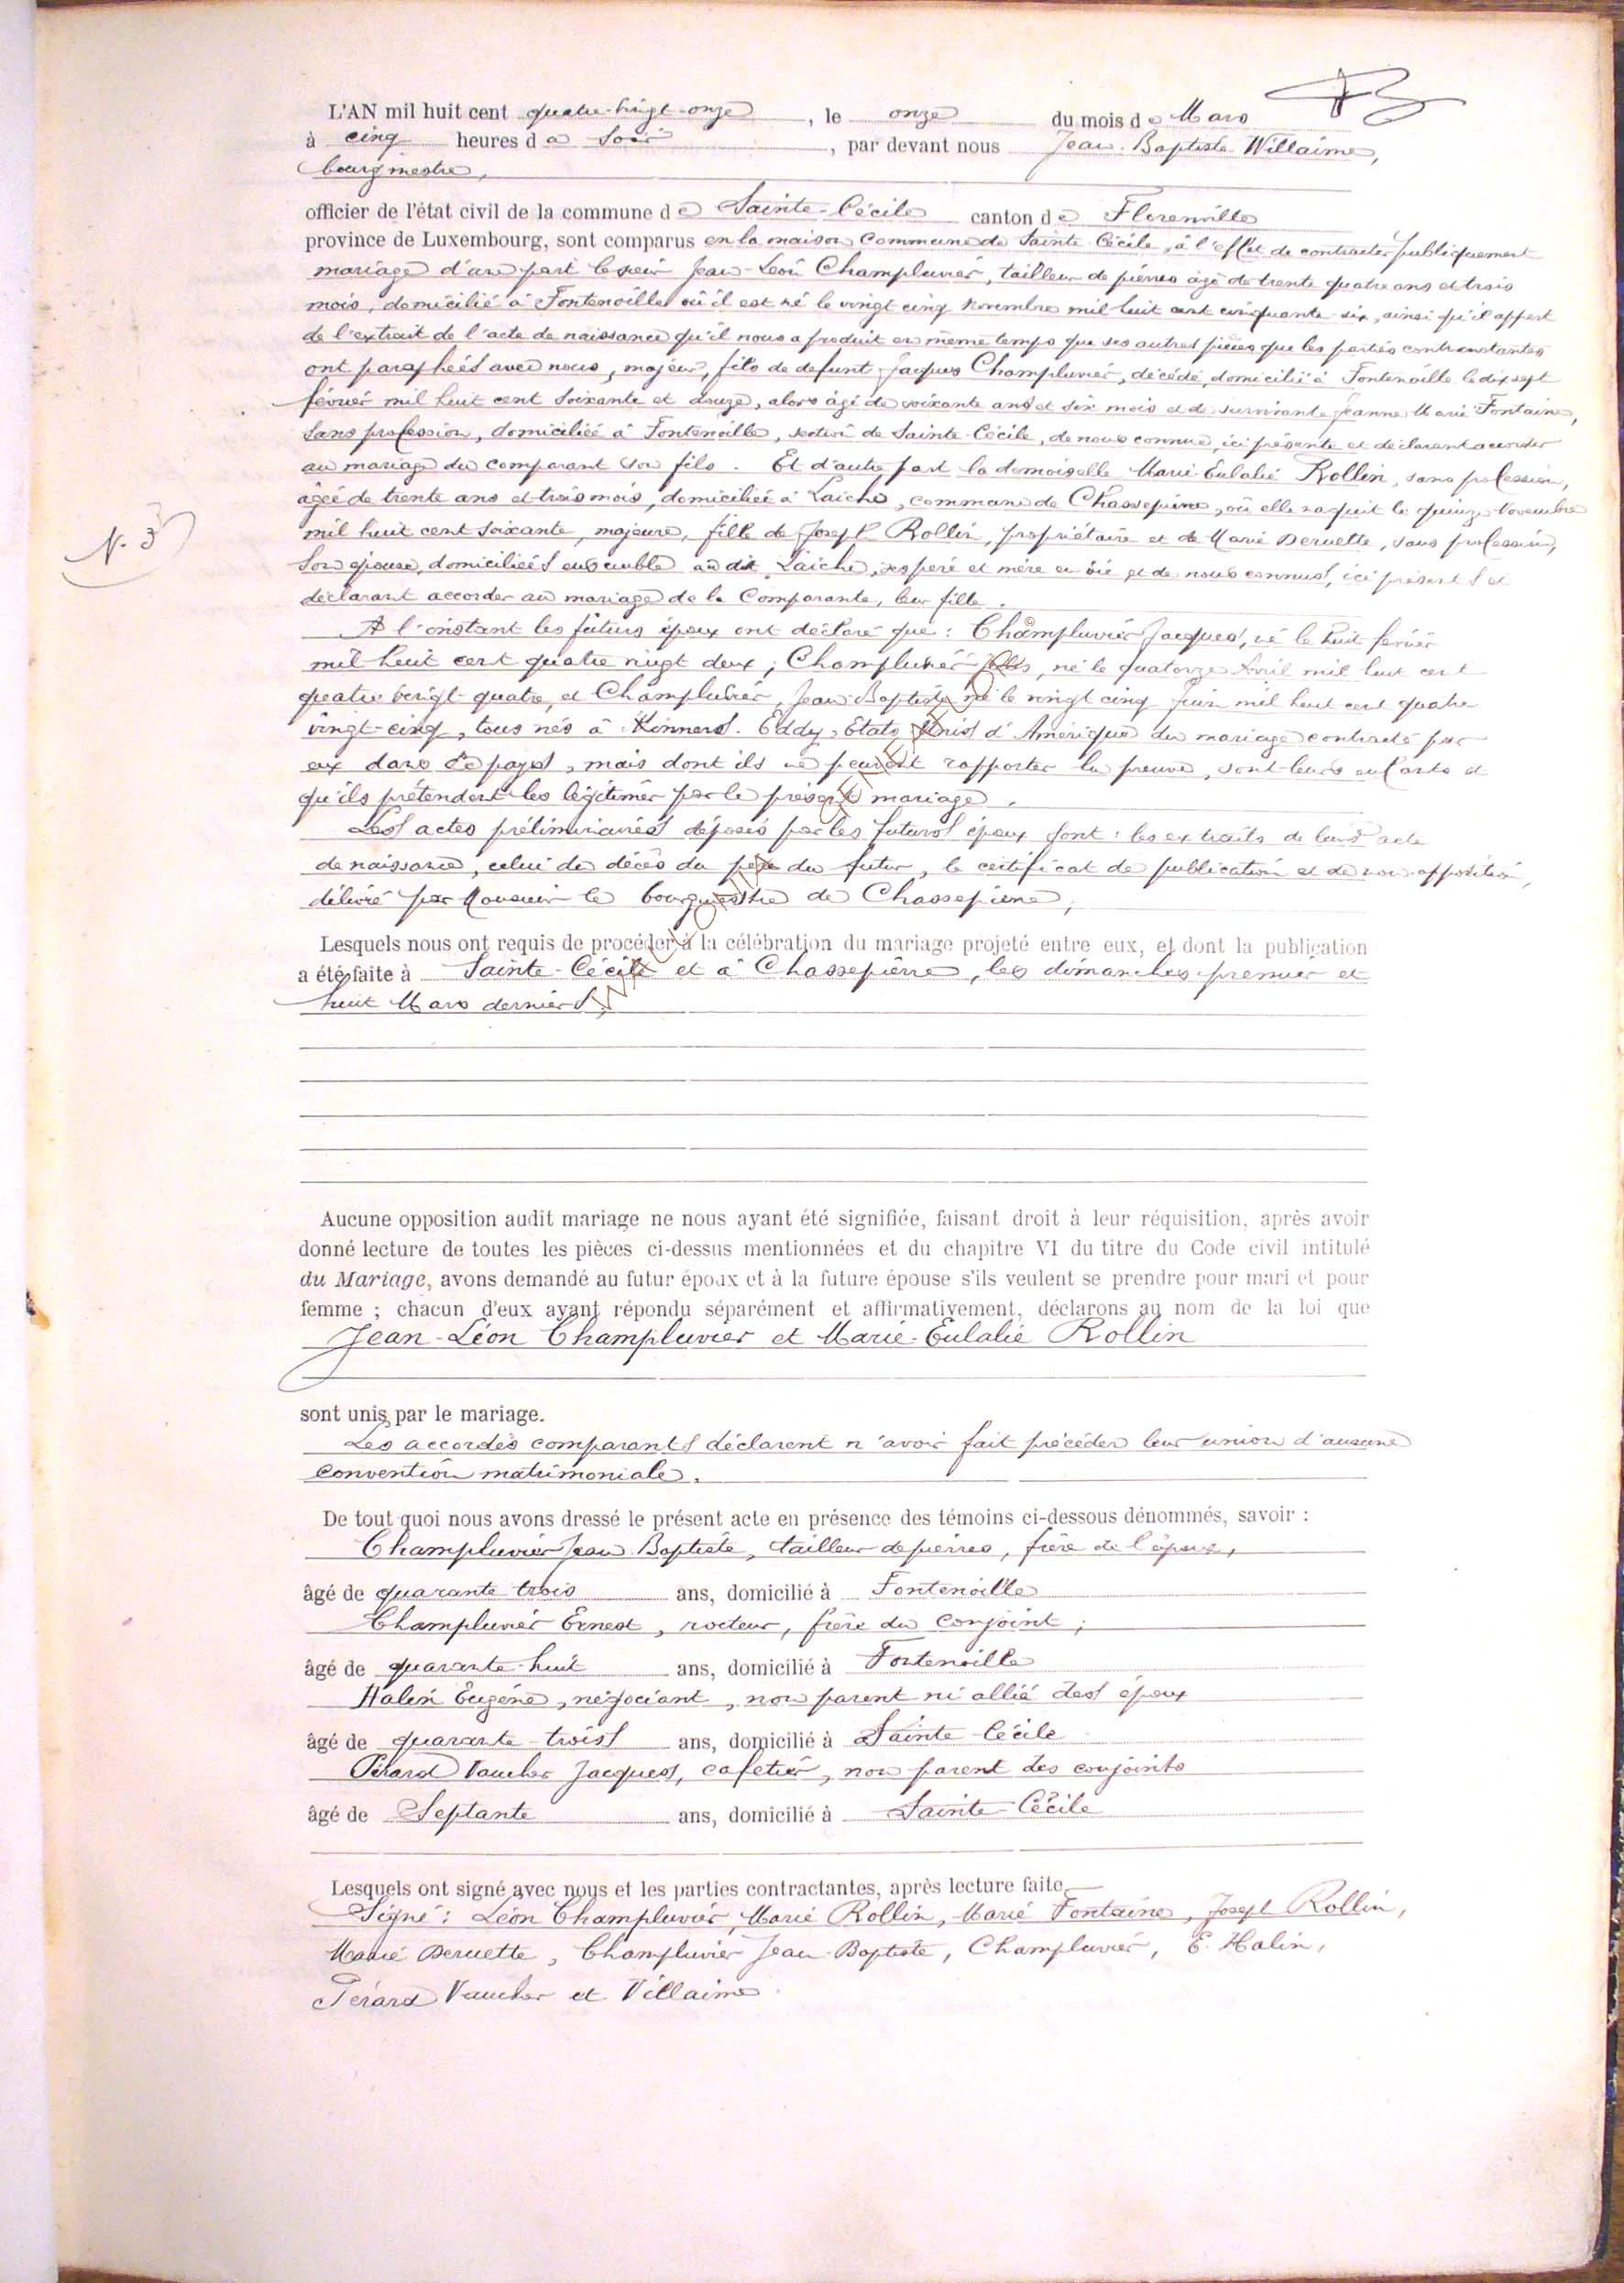 L'AN mil huit cent quatre-vingt-onze, le onze du mois de Mars
à cinq heures du Soir, par devant nous Jean-Baptiste Willaime,
bourgmestre,
officier de l'état civil de la commune de Sainte-Cécile canton de Florenville
province de Luxembourg, sont comparus en la maison Commune de Sainte-Cécile, à l'effet de contracter publiquement
mariage d'une part le sieur Jean-Léon Champluvier, tailleur de pierres âgé de trente quatre ans et trois
mois, domicilié à Fontenoille où il est né le vingt cinq Novembre mil huit cent cinquante-six, ainsi qu'il appert
de l'extrait de l'acte de naissance qu'il nous a produit en même temps que ses autres pièces que les parties contractantes
ont paraphées avec nous, majeur, fils de defunt Jacques Champluvier, décédé, domicilié à Fontenoille le dix sept
février mil huit cent soixante et douze, alors âgé de soixante ans et six mois et de survivante Jeanne Marie Fontaine,
Sans profession, domiciliée à Fontenoille, section de Sainte-Cécile, de nous connue, ici présente et déclarant accorder
au mariage du comparant son fils. Et d'autre part la demoiselle Marie-Eulalie Rollin, sans profession,
âgée de trente ans et trois mois, domiciliée à Laiche, commune de Chassepierre, où elle naquit le quinze Novembre
N. 3
mil huit cent soixante, majeure, fille de Joseph Rollin, propriétaire et de Marie Deruette, sans profession,
son épouse, domiciliés ensemble au dit Laiche, ses père et mère en vie et de nous connus, ici présents et
déclarant accorder au mariage de la Comparante, leur fille.
A l'instant les futurs époux ont déclaré que : Champluvier Jacques, né le huit fevrier
mil huit cent quatre vingt deux ; Champluvier Jules, né le quatorze Avril mil huit cent
quatre vingt-quatre, et Champluvier, Jean-Baptiste né le vingt cinq Juin mil huit cent quatre
vingt-cinq, tous nés à Kinners-Eddy, Etats Unis d'Amérique du mariage contracté par
eux dans ce pays, mais dont ils ne peuvent rapporter la preuve, sont leurs enfants et
qu'ils prétendent les légitimer par le présent mariage.
Les actes préliminaires déposés par les futurs époux sont : les extraits de leurs acte
de naissance, celui du décès du père du futur, le certificat de publication et de non-opposition,
délivré par Monsieur le bourgmestre de Chassepierre,
© WALLONIA GENEANET.ORG
Lesquels nous ont requis de procéder à la célébration du mariage projeté entre eux, et dont la publication
a été faite à Sainte-Cécile et à Chassepierre, les dimanches premier et
huit Mars derniers.
Aucune opposition audit mariage ne nous ayant été signifiée, faisant droit à leur réquisition, après avoir
donné lecture de toutes les pièces ci-dessus mentionnées et du chapitre VI du titre du Code civil intitulé
du Mariage, avons demandé au futur époux et à la future épouse s'ils veulent se prendre pour mari et pour
femme ; chacun d'eux ayant répondu séparément et affirmativement, déclarons au nom de la loi que
Jean-Léon Champluvier et Marie-Eulalie Rollin
sont unis par le mariage.
Les accordés comparants déclarent n'avoir fait précéder leur union d'aucune
convention matrimoniale.
De tout quoi nous avons dressé le présent acte en présence des témoins ci-dessous dénommés, savoir :
Champluvier Jean-Baptiste, tailleur de pierres, frère de l'époux,
âgé de quarante trois ans, domicilié à Fontenoille
Champluvier Ernest, rocteur, frère du conjoint ;
âgé de quarante-huit ans, domicilié à Fontenoille
Halin Eugène, négociant, non parent ni allié des époux
âgé de quarante-trois ans, domicilié à Sainte-Cécile
Pérard Vaucher Jacques, cafetier, non parent des conjoints
âgé de Septante ans, domicilié à Sainte-Cécile
Lesquels ont signé avec nous et les parties contractantes, après lecture faite.
Signé : Léon Champluvier, Marie Rollin, Marie Fontaine, Joseph Rollin,
Marie Deruette, Champluvier Jean-Baptiste, Champluvier, E. Halin,
Pérard Vaucher et Villaime